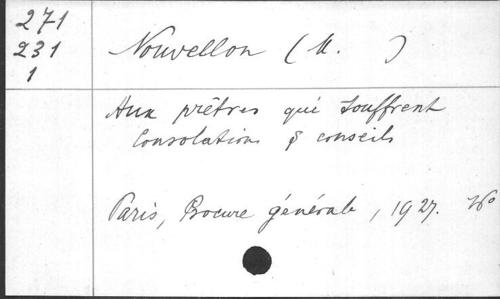 271
231
1
Nouvellon (M. )
Aux prêtres qui souffrent
Consolations & conseils
Paris, Procure générale, 1927. 16°